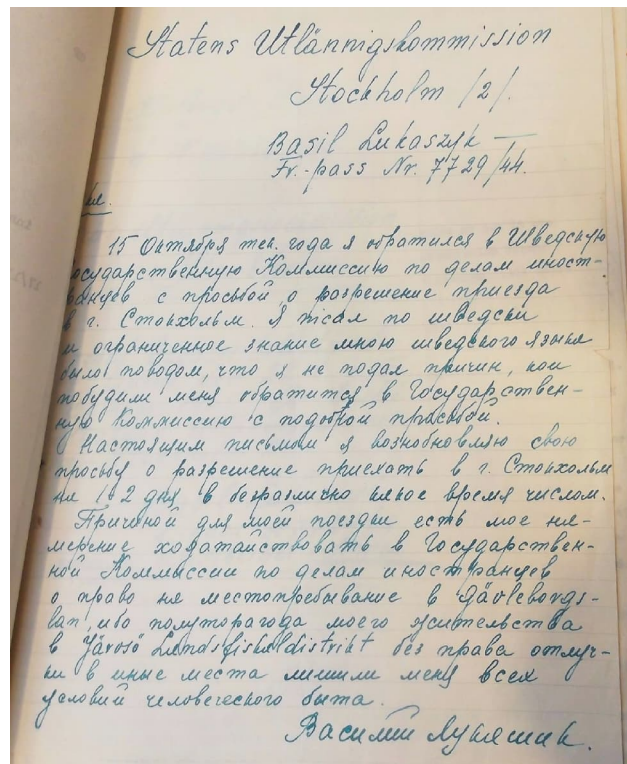 Statens Utlännigskommission
Stockholm /2/.
Basil Lukaszyk —
Fr.-pass Nr. 7729/44.
15 Октября тек. года я обратился в Шведскую
осударственную Коммиссию по делам иност-
ранцев с просьбой о разрешение приезда
в г. Стокхольм. Я писал по шведски
и ограниченное знание мною шведского языка
было поводом, что я не подал причин, кои
побудили меня обратится в Государствен-
ную Коммиссию с подобной просьбой.
Настоящим письмом я возобновляю свою
просьбу о разрешение приехать в г. Стокхольм
на 1-2 дня в безразлично какое время числом.
Причиной для моей поездки есть мое на-
мерение ходатайствовать в Государствен-
ной Коммиссии по делам иностранцев
о право на местопребывание в Gävleborgs-
län, ибо полторагода моего жительства
в Järvsö Landsfiskaldistrikt без права отлуч-
ки в иные места лишили меня всех
условий человеческого быта.
Василий Лукашик.